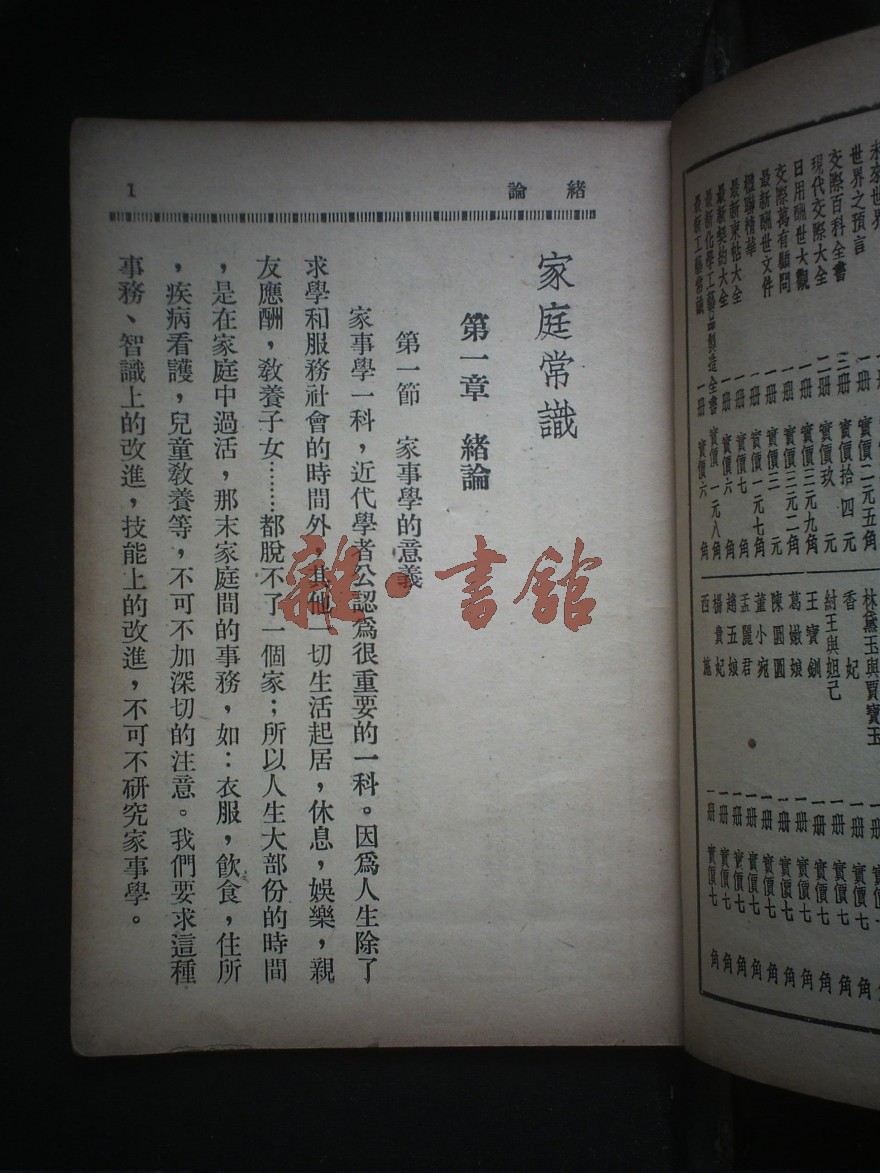 緒論
1
家庭常識
第一章 緒論
第一節 家事學的意義
家事學一科，近代學者公認爲很重要的一科。因爲人生除了
求學和服務社會的時間外，其他一切生活起居，休息，娛樂，親
友應酬，敎養子女……都脫不了一個家；所以人生大部份的時間
，是在家庭中過活，那末家庭間的事務，如：衣服，飲食，住所
，疾病看護，兒童敎養等，不可不加深切的注意。我們要求這種
事務、智識上的改進，技能上的改進，不可不研究家事學。
雜·書館
未來世界
世界之預言 一册 實價二元五角
交際百科全書 三册 實價拾四元
現代交際大全 二册 實價玖元
日用酬世大觀 一册 實價三元九角
交際萬有顧問 一册 實價三元二角
最新酬世文件 一册 實價三元
楹聯精華 一册 實價一元七角
最新柬帖大全 一册 實價七角
最新契約大全 一册 實價六角
最新化學工藝品製造全書 一册 實價一元八角
最新工藝常識 一册 實價六角
林黛玉與賈寶玉 一册 實價七角
香妃 一册 實價七角
紂王與妲己 一册 實價七角
王寶釧 一册 實價七角
葛嫩娘 一册 實價七角
陳圓圓 一册 實價七角
董小宛 一册 實價七角
孟麗君 一册 實價七角
趙五娘 一册 實價七角
楊貴妃 一册 實價七角
西施 一册 實價七角